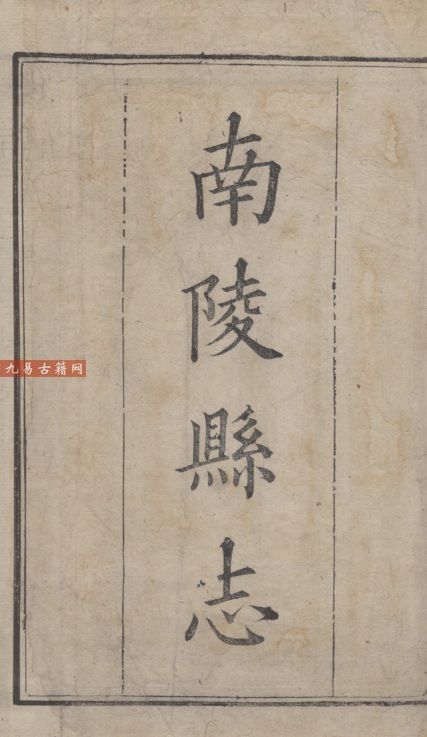 南陵縣志
九易古籍网